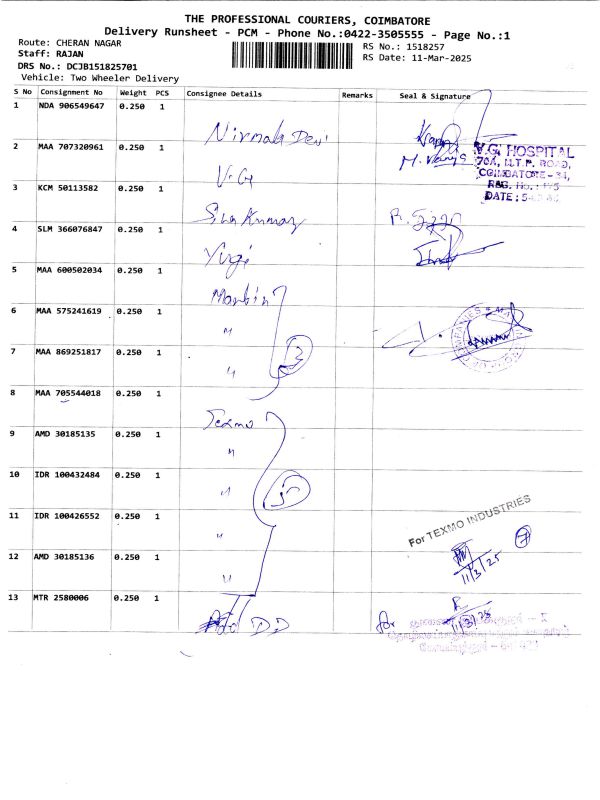 THE PROFESSIONAL COURIERS, COIMBATORE
Delivery Runsheet - PCM - Phone No.:0422-3505555 - Page No.:1
Route: CHERAN NAGAR
RS No.: 1518257
Staff: RAJAN
RS Date: 11-Mar-2025
DRS No.: DCJB151825701
Vehicle: Two Wheeler Delivery
S No Consignment No Weight PCS Consignee Details Remarks Seal & Signature
1 NDA 906549647 0.250 1
Nirmala Devi
2 MAA 707320961 0.250 1
V.G. HOSPITAL
70A, M.T.P. ROAD,
V.G
COIMBATORE - 34,
3 KCM 50113582 0.250 1
DATE :
Siva Kumar
4 SLM 366076847 0.250 1
Yugi
5 MAA 600502034 0.250 1
Martin
6 MAA 575241619 0.250 1
"
7 MAA 869251817 0.250 1
" 3
8 MAA 705544018 0.250 1
Texmo
9 AMD 30185135 0.250 1
"
10 IDR 100432484 0.250 1
" 5
11 IDR 100426552 0.250 1
For TEXMO INDUSTRIES
"
12 AMD 30185136 0.250 1
11/3/25
"
13 MTR 2580006 0.250 1
DD for 11/3/25